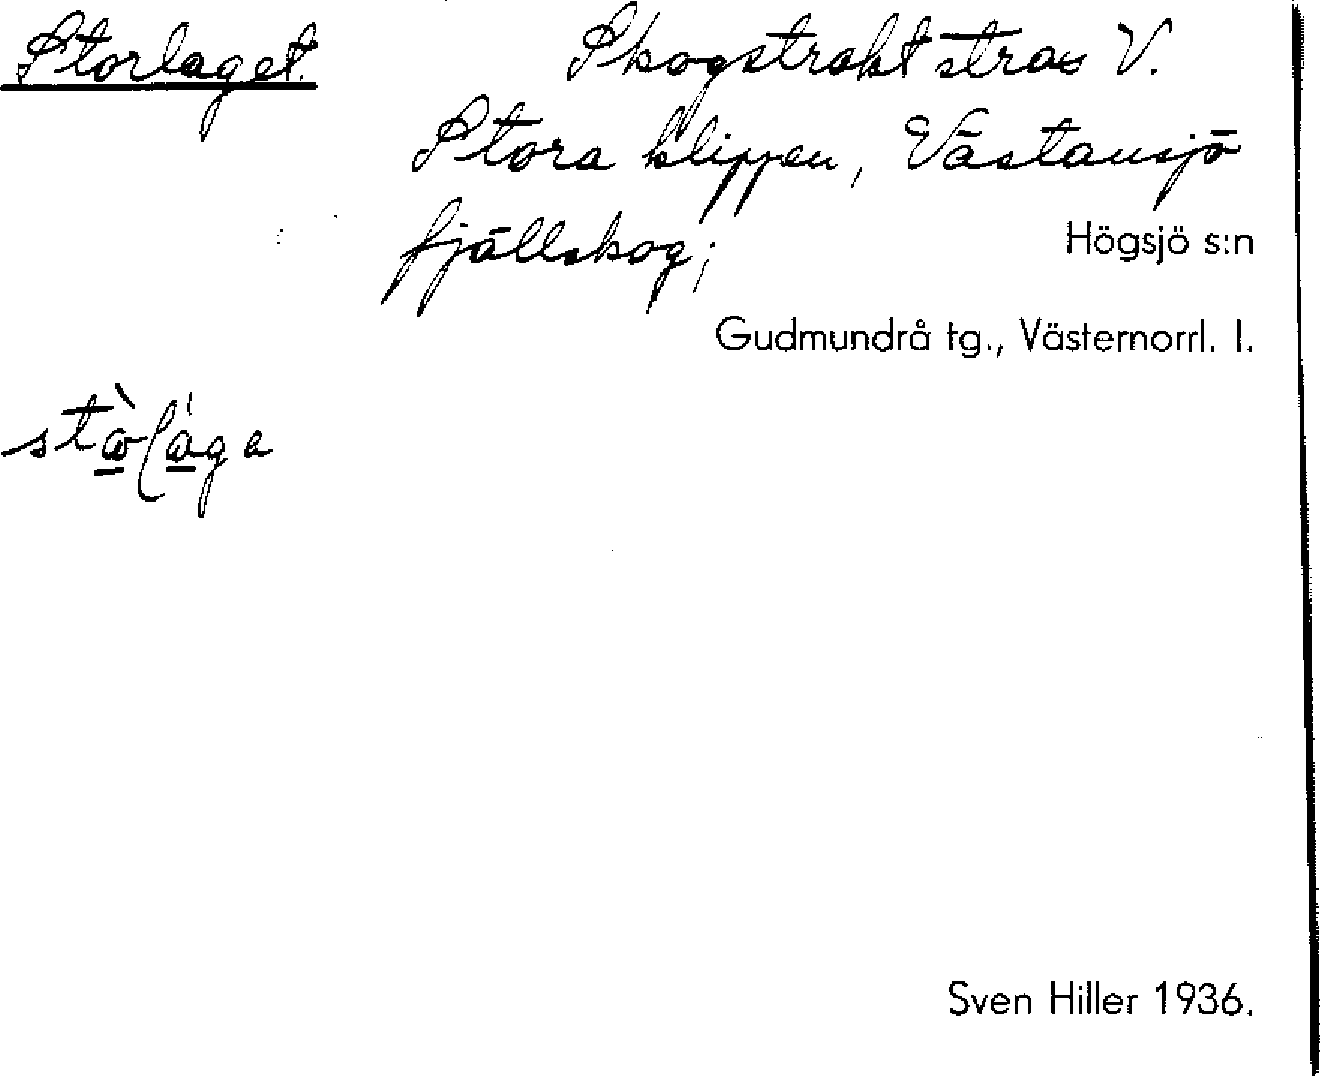 Storlaget. Skogstrakt strax V.
Stora klippen, Västansjö
fjällskog;
Högsjö s:n
Gudmundrå tg., Västernorrl. l.
Sven Hiller 1936.